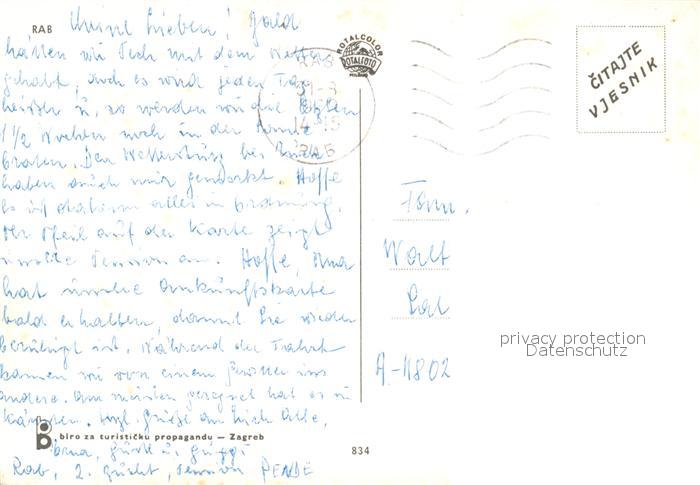 RAB
Meine Lieben! Bald
hätten wir Pech mit dem Wetter
gehabt, doch es wird jeden Tag
heißer u. so werden wir die letzten
1 1/2 Wochen noch in der Sonne
braten. Den Wettersturz bei Euch
haben auch wir gemerkt. Hoffe
es ist daheim alles in Ordnung.
Der Pfeil auf der Karte zeigt
unsere Pension an. Hoffe, Oma
hat unsere Ankunftskarte
bald erhalten, damit Sie wieder
beruhigt ist. Während der Fahrt
kamen wir von einem Gewitter ins
andere. Am meisten geregnet hat es in
Kärnten. Herzl. Grüße an Euch Alle,
Rab, 2. Pension PENDE
biro za turističku propagandu — Zagreb
834
ROTALCOLOR
ROTALFOTO
MILANO
RAB
ČITAJTE
VJESNIK
Fam.
A-1180
privacy protection
Datenschutz